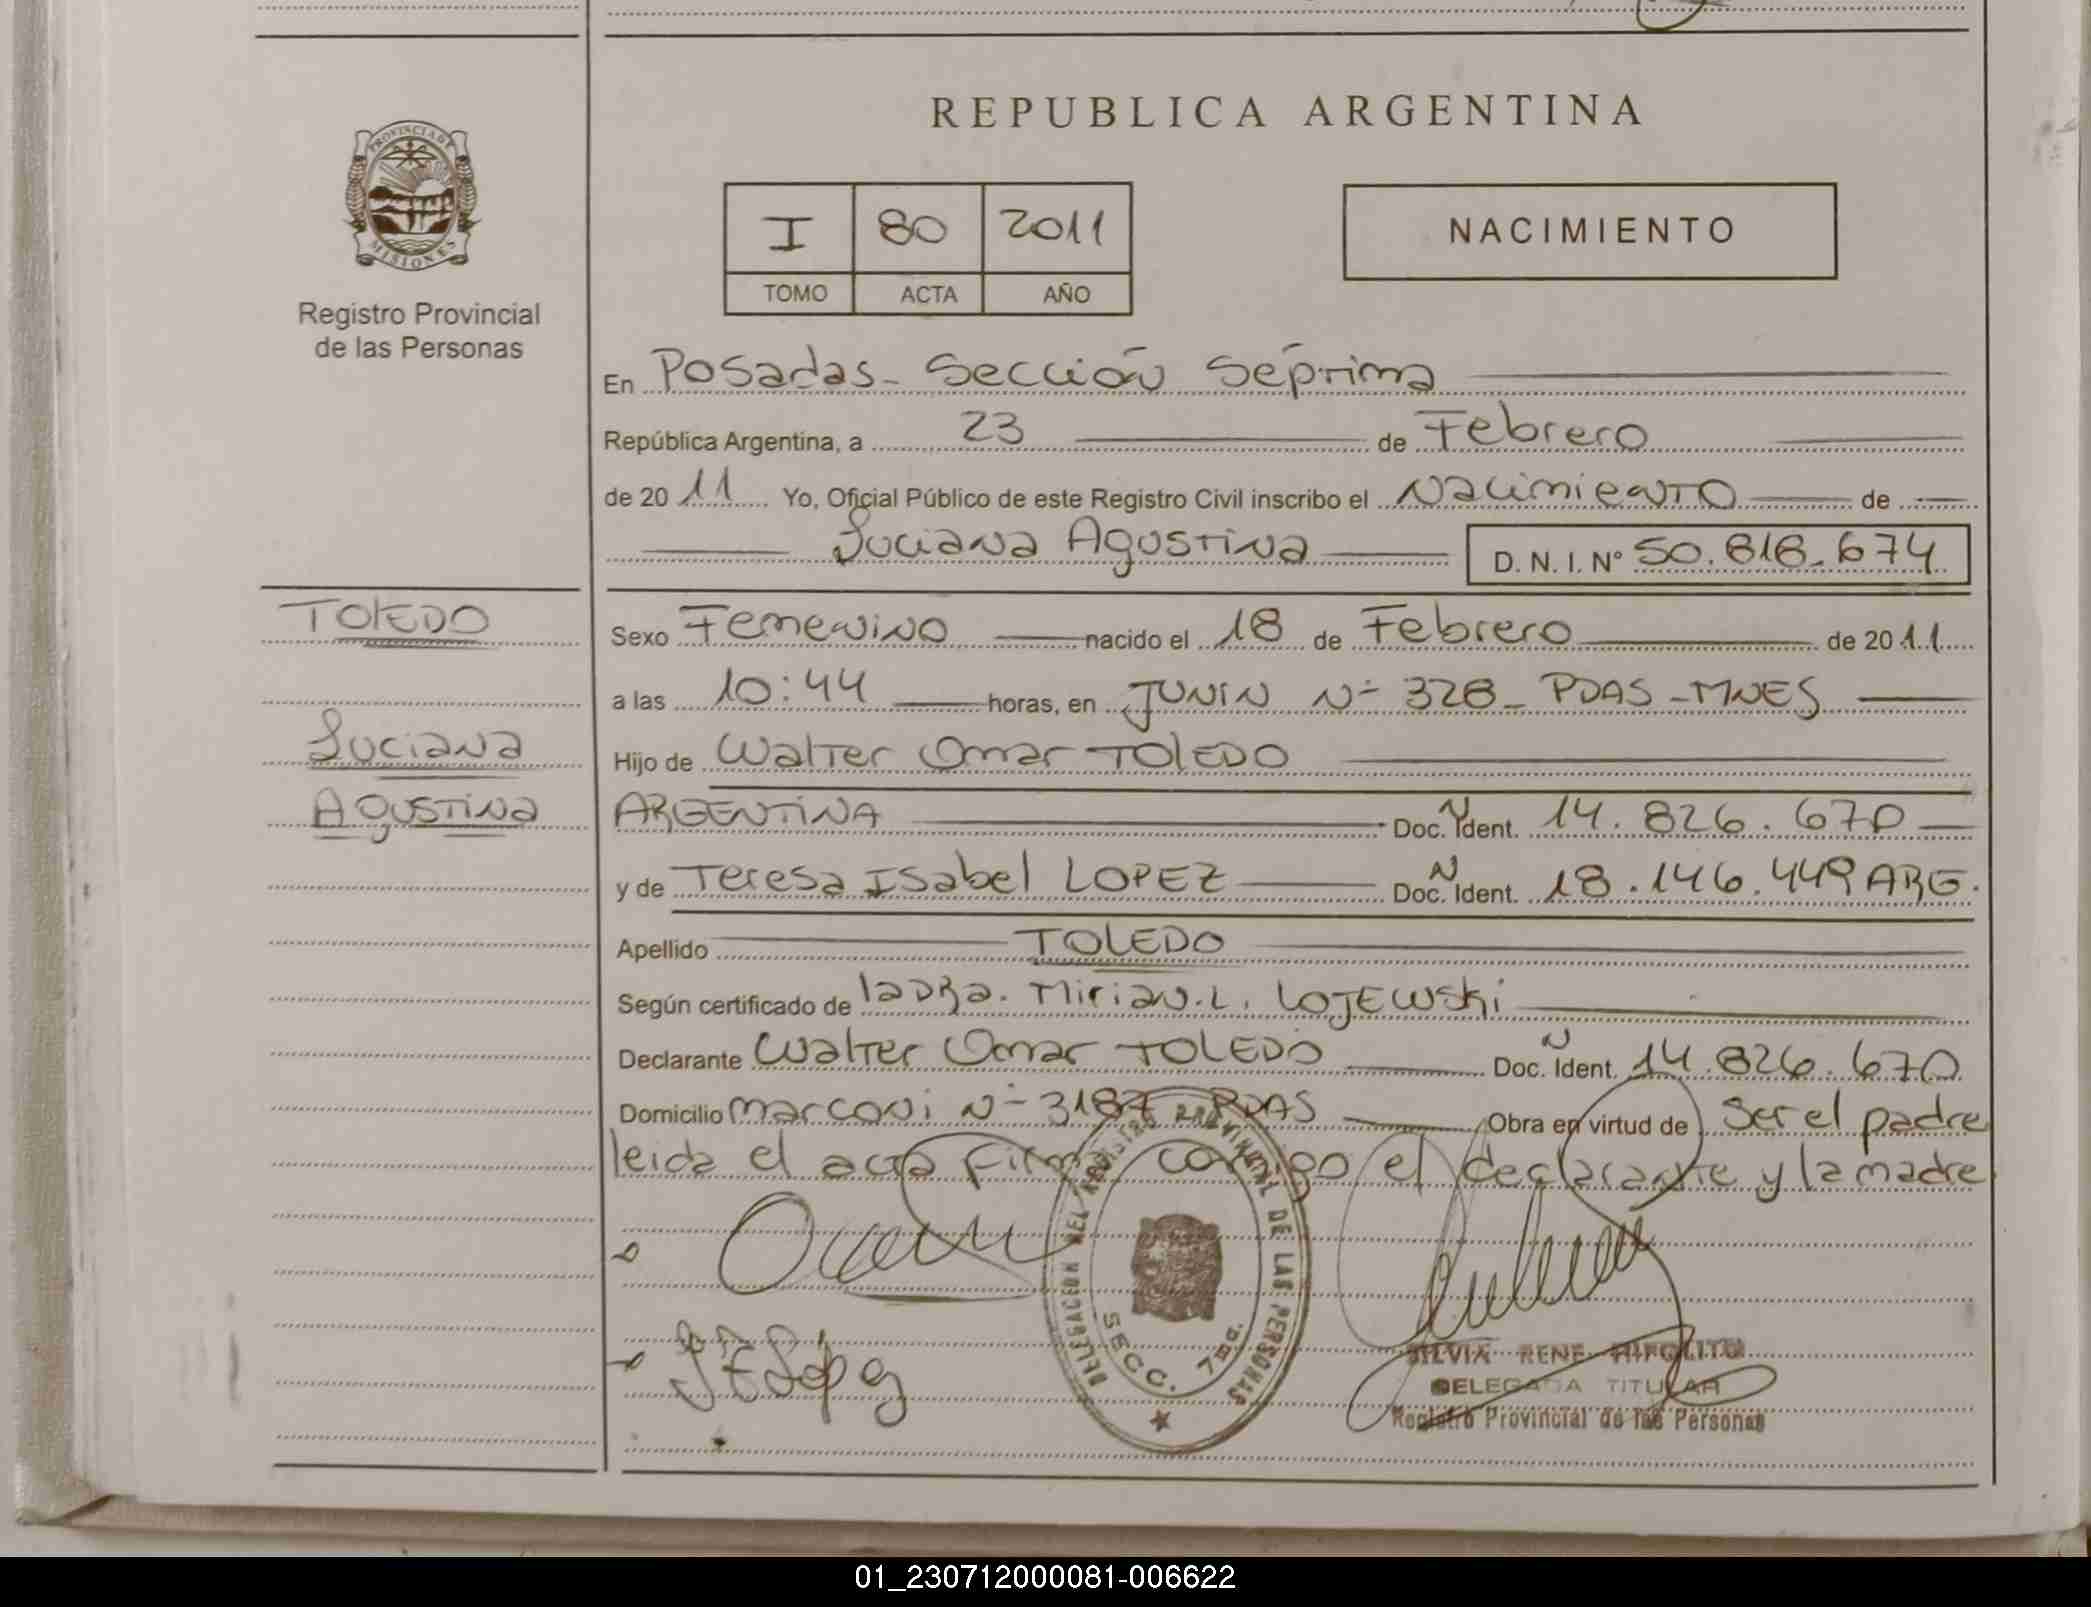 REPUBLICA ARGENTINA
PROVINCIA DE
MISIONES
Registro Provincial
de las Personas
I 80 2011
TOMO ACTA AÑO
NACIMIENTO
En Posadas - Sección Séptima
República Argentina, a 23 de Febrero
de 2011 Yo, Oficial Público de este Registro Civil inscribo el Nacimiento de
Luciana Agustina D. N. I. Nº 50.818.674
TOLEDO
Luciana
Agustina
Sexo Femenino nacido el 18 de Febrero de 2011
a las 10:44 horas, en JUNIN Nº 328 - PDAS - MNES
Hijo de Walter Omar TOLEDO
ARGENTINA Doc. N Ident. 14.826.670
y de Teresa Isabel LOPEZ Doc. N Ident. 18.146.449 ARG.
Apellido TOLEDO
Según certificado de la DRa. Mirian. L. LOJEWSKi
Declarante Walter Omar TOLEDO Doc. N Ident. 14.826.670
Domicilio Marconi Nº 3187 PDAS Obra en virtud de Ser el padre
leida el acta firma conmigo el declarante y la madre
DELEGACION DEL REGISTRO PROVINCIAL DE LAS PERSONAS
SECC. 7ma.
SILVIA RENE HIPOLITO
DELEGADA TITULAR
Registro Provincial de las Personas
01_230712000081-006622